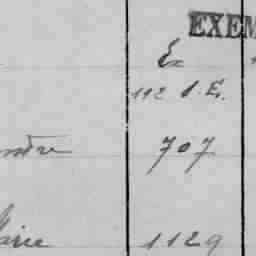 EXEM
Ex
112 S.E.
ndre 707
arie 1129